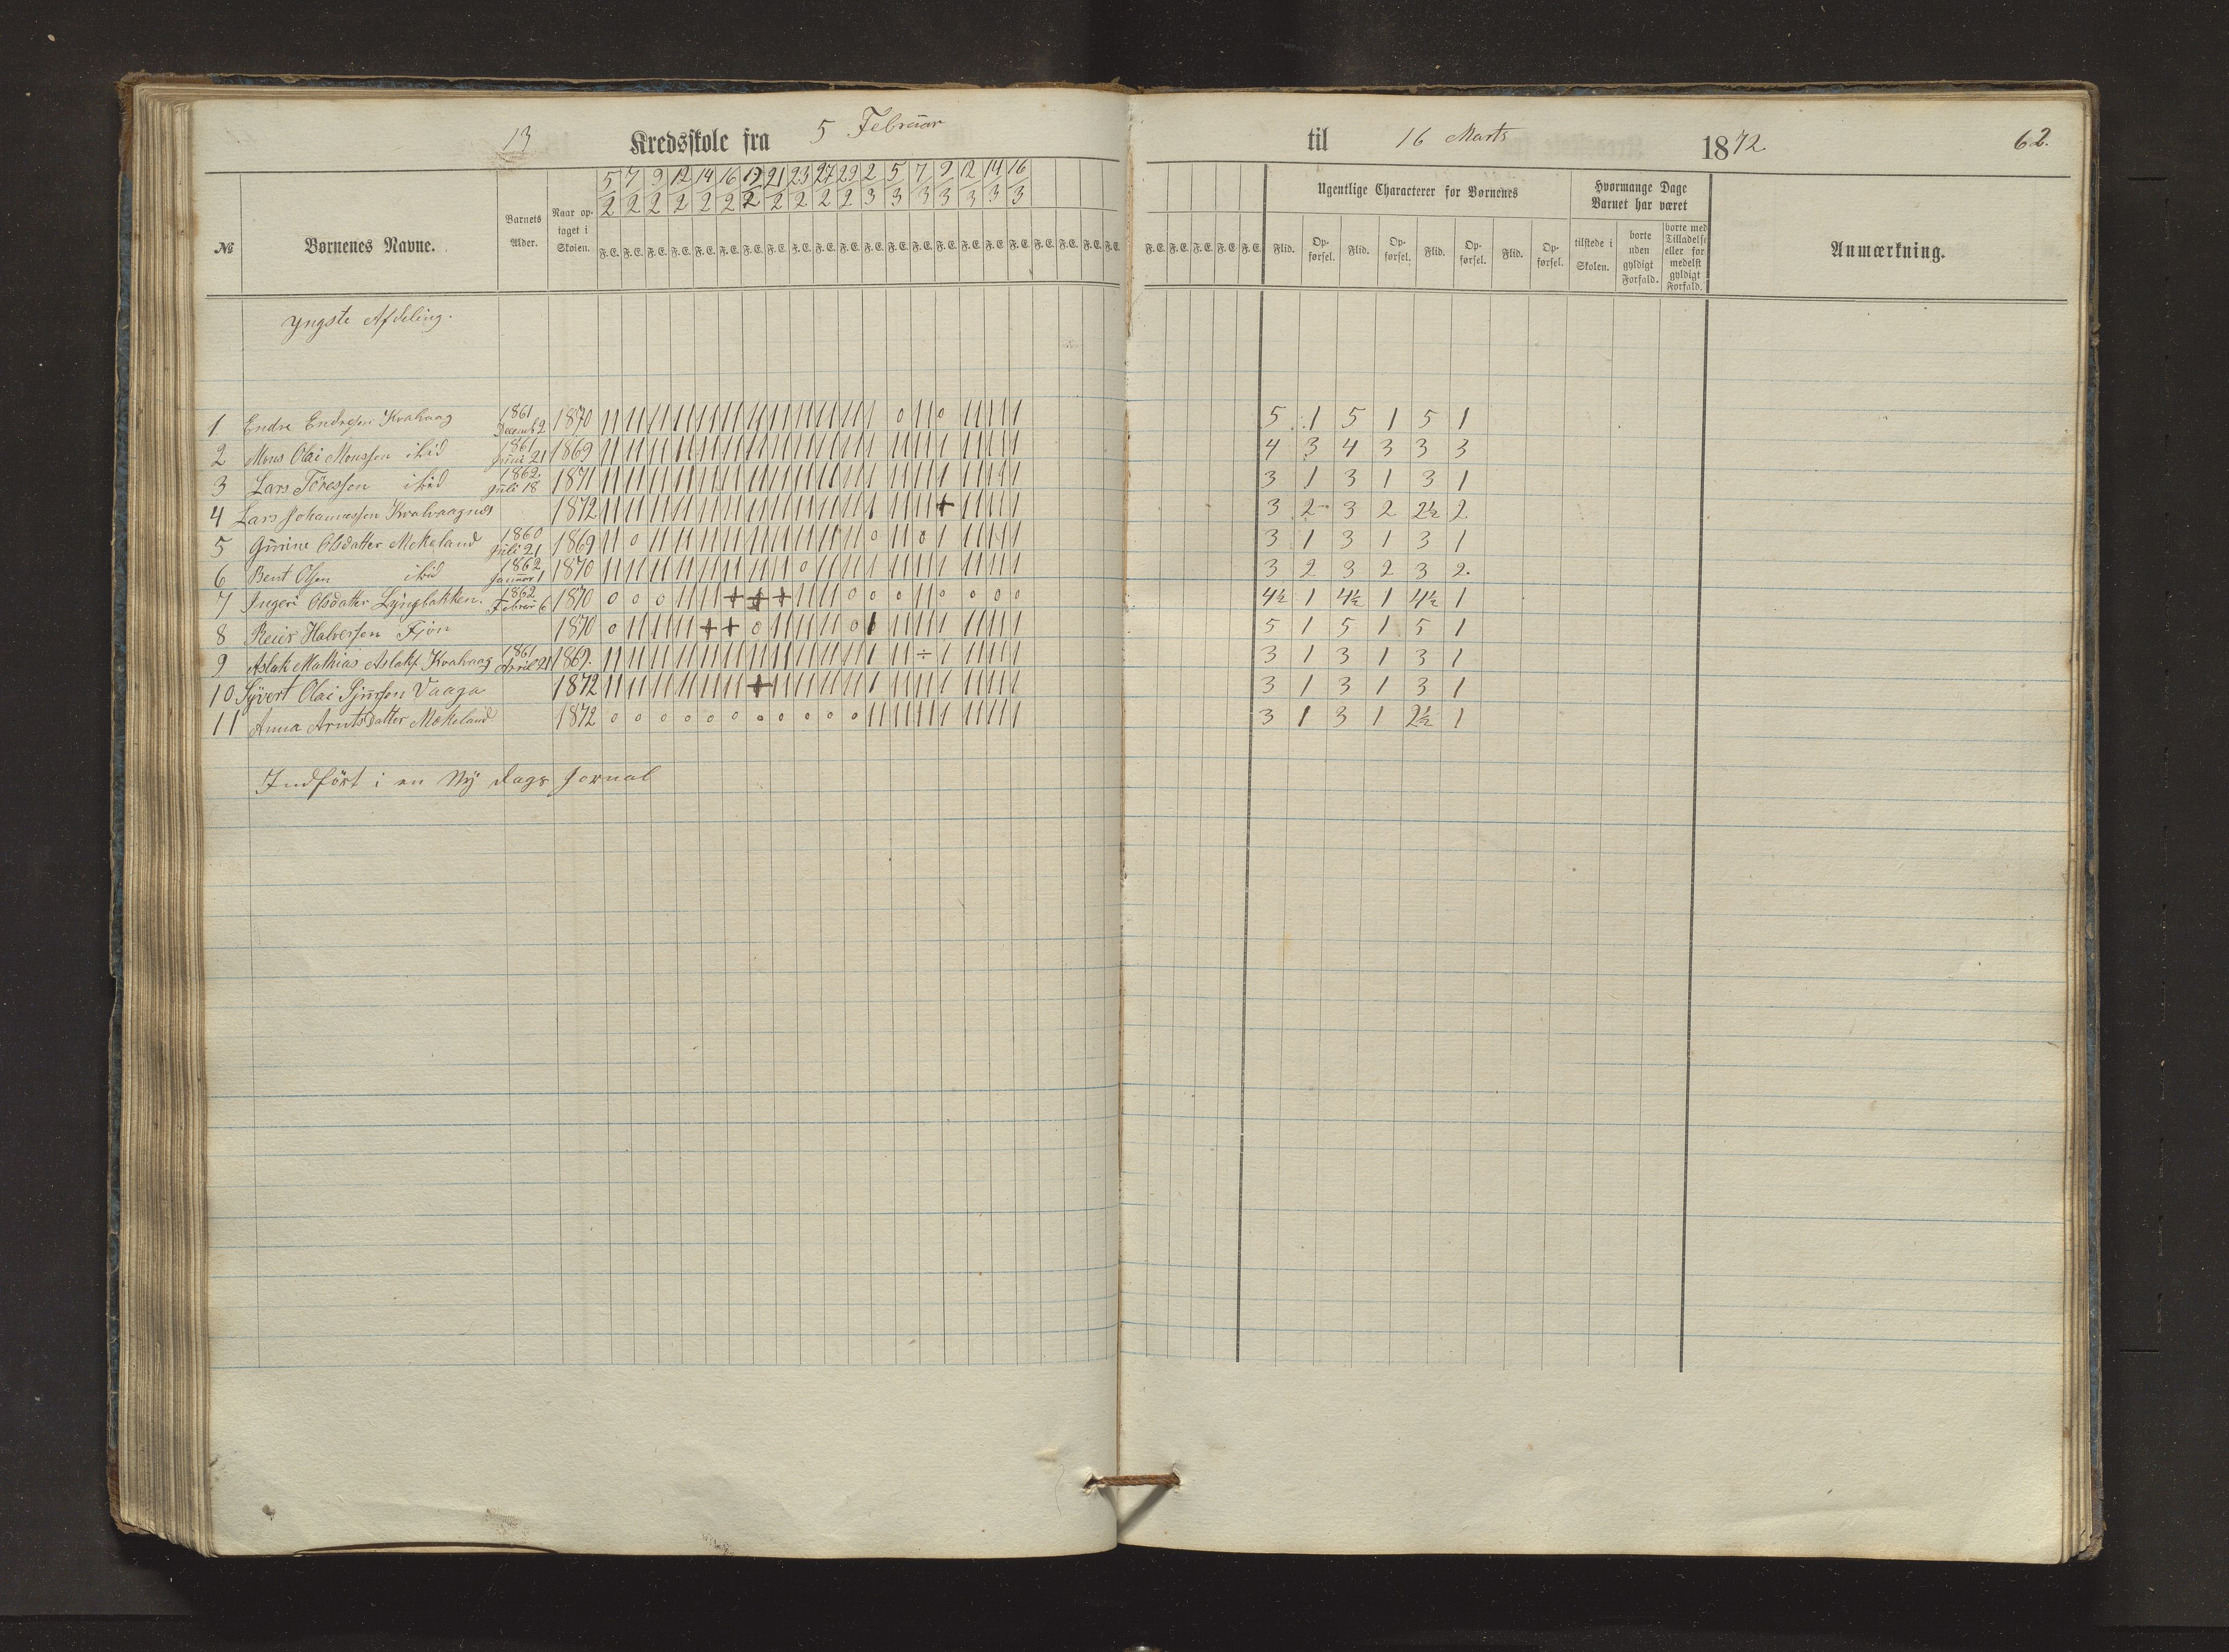 13 Kredsskole fra 5 Februar til 16 Marts 1872. 62.
№ Børnenes Navne. Barnets Alder. Naar optaget i Skolen. 5/2 7/2 9/2 12/2 14/2 16/2 19/2 21/2 23/2 27/2 29/2 2/3 5/3 7/3 9/3 12/3 14/3 16/3
F. E. F. E. F. E. F. E. F. E. F. E. F. E. F. E. F. E. F. E. F. E. F. E. F. E. F. E. F. E. F. E. F. E. F. E. F. E. F. E. F. E. F. E.
F. E. F. E. F. E. F. E. F. E.
Ugentlige Characterer for Børnenes
Flid. Opførsel. Flid. Opførsel. Flid. Opførsel. Flid. Opførsel.
Hvormange Dage Barnet har været
tilstede i Skolen. borte uden gyldigt Forfald. borte med Tilladelse eller formedelst gyldigt Forfald.
Anmærkning.
Yngste Afdeling.
1. Endre Endresen Kvalvaag 1861 Decemb 2 1870 5 1 5 1 5 1
2 Mons Olai Monssen ibid 1861 Juni 21 1869 4 3 4 3 3 3
3 Lars Töressen ibid 1862 Juli 18 1871 3 1 3 1 3 1
4 Lars Johannessen Kvalvaagnes 1872 3 2 3 2 2½ 2
5 Gurine Olsdatter Mekeland 1860 Juli 21 1869 3 1 3 1 3 1
6 Bent Olsen ibid 1862 Januar 1 1870 3 2 3 2 3 2.
7 Ingeri Olsdatter Lyngbakken. 1862 Februar 6 1870 4½ 1 4½ 1 4½ 1
8 Reier Halversen Fjøn 1870 5 1 5 1 5 1
9 Aslak Mathias Aslaks. Kvalvaag 1861 April 21 1869. 3 1 3 1 3 1
10 Syvert Olai Vaaga 1872 3 1 3 1 3 1
11 Anna Arntsdatter Mækeland 1872 3 1 3 1 2½ 1
Indført i en Ny Dags Jornal